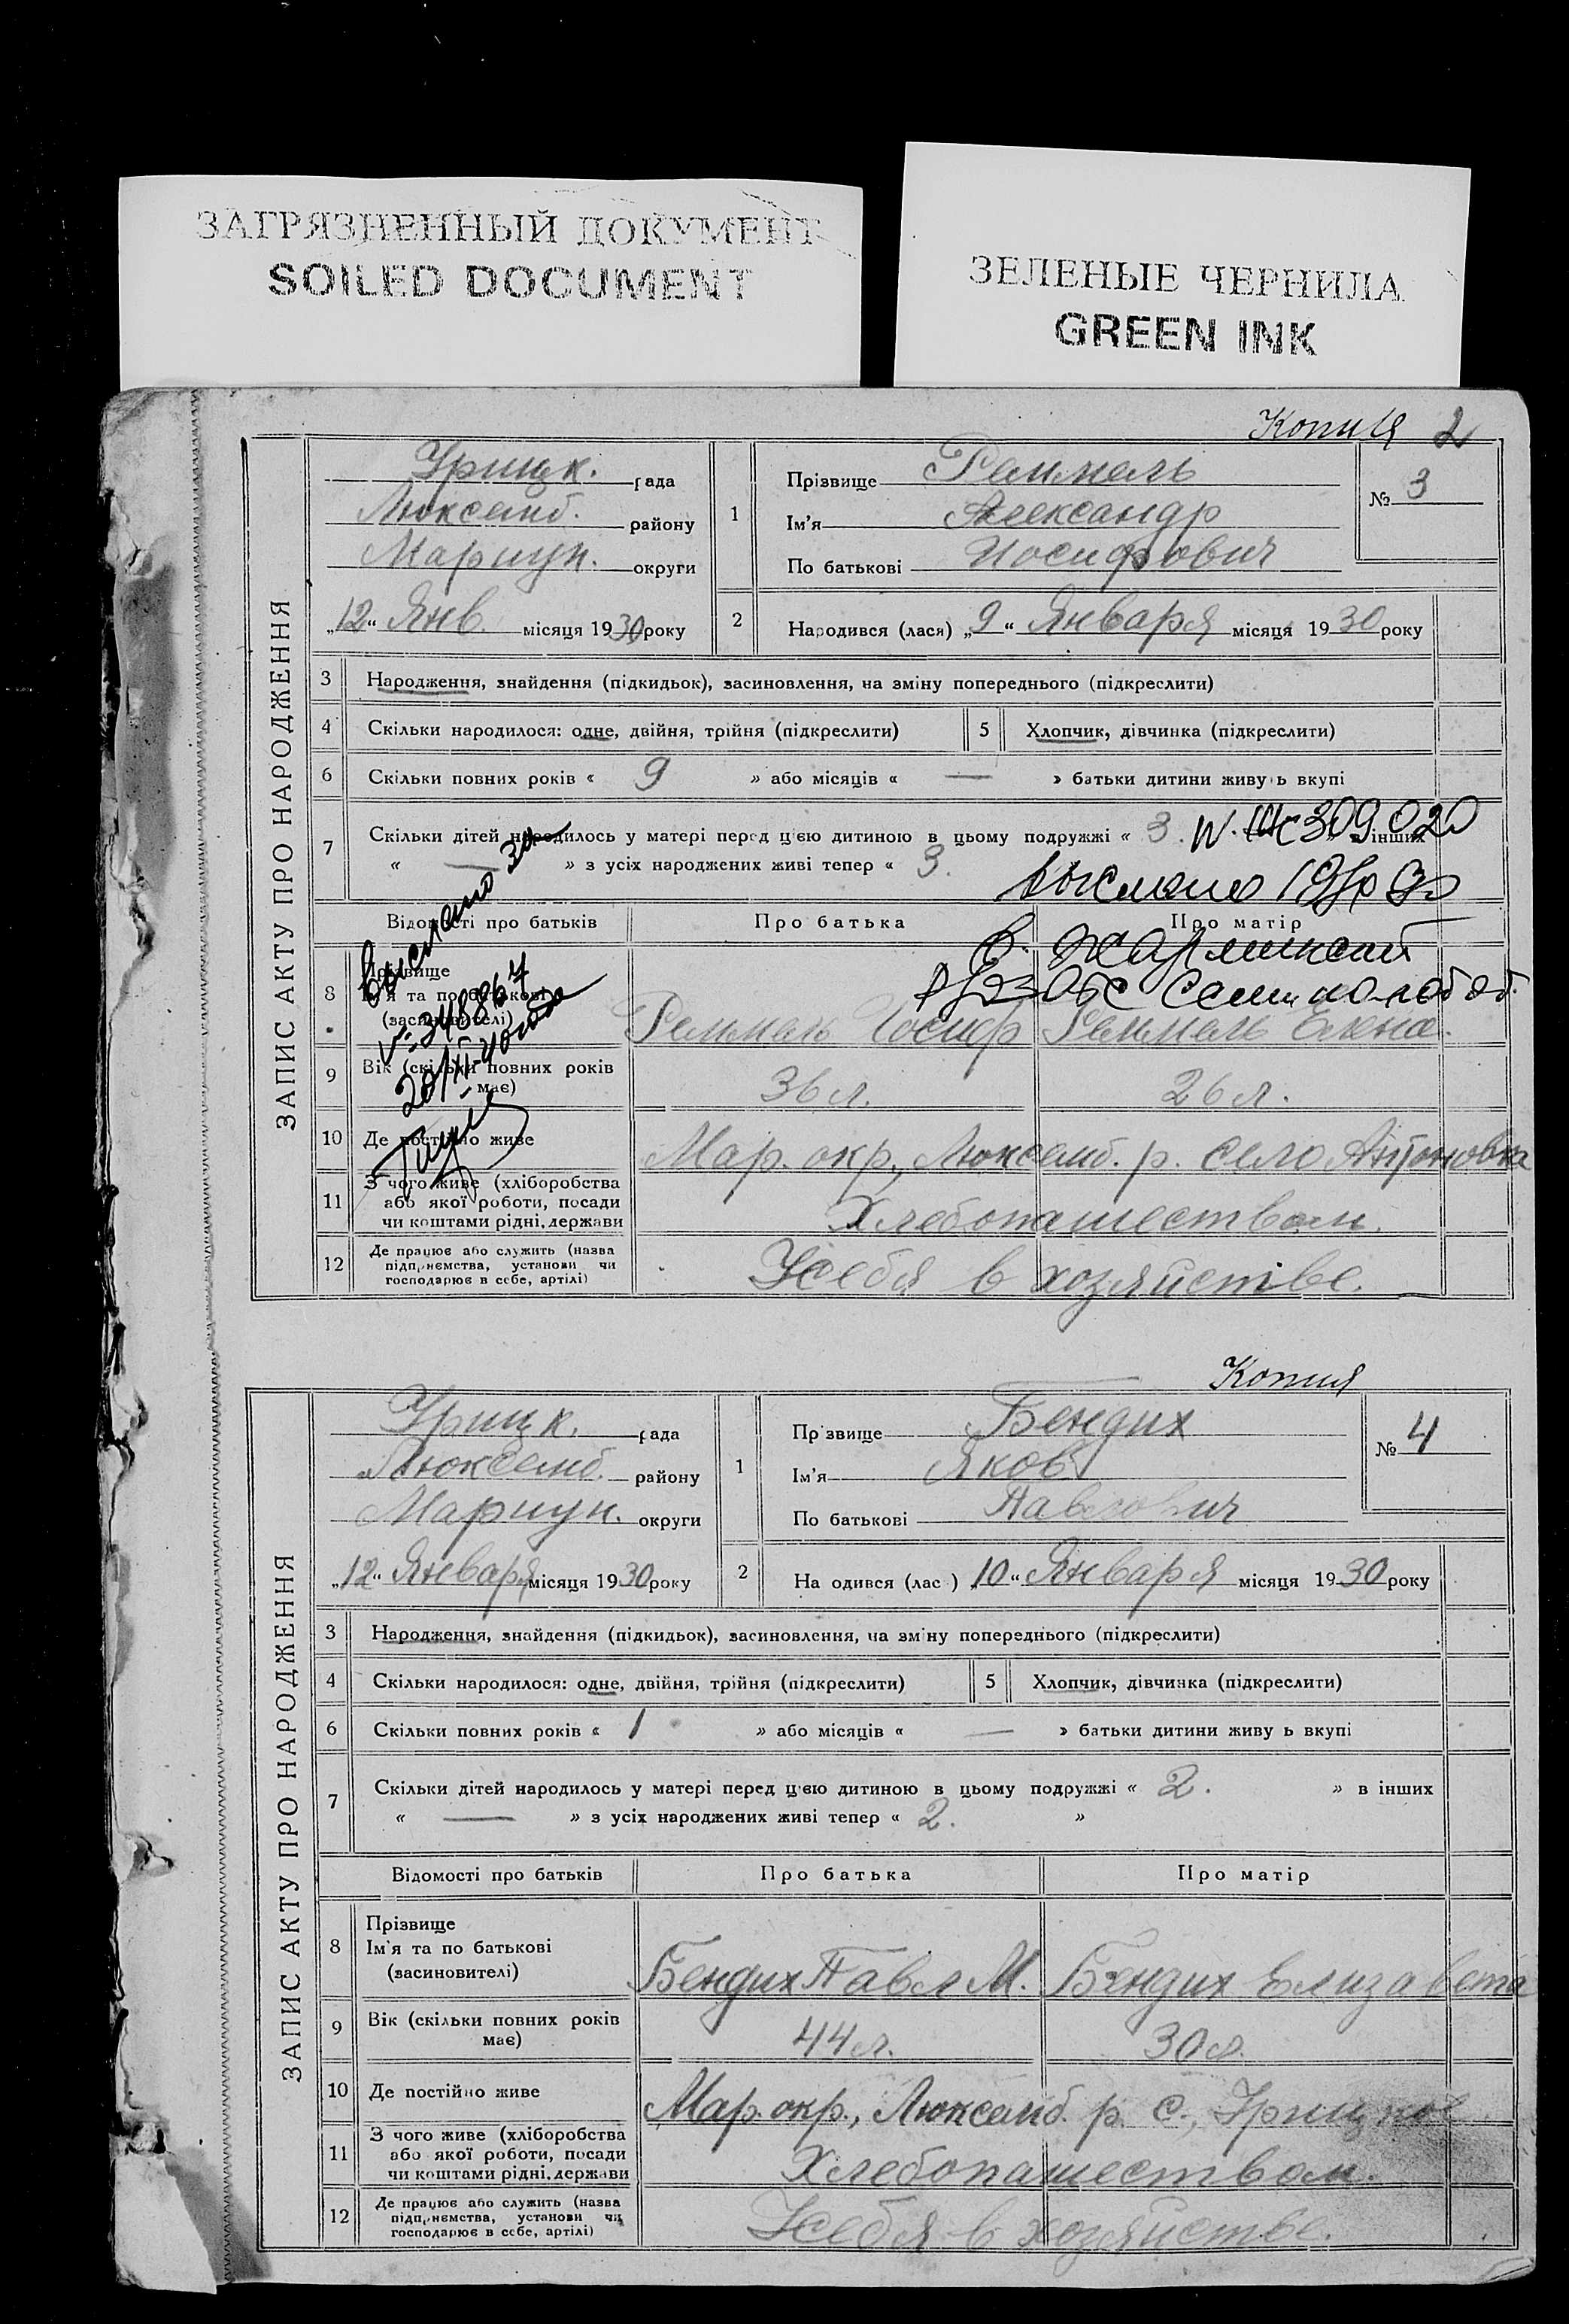 ЗАГРЯЗНЕННЫЙ ДОКУМЕНТ
SOILED DOCUMENT
ЗЕЛЕНЫЕ ЧЕРНИЛА
GREEN INK
Копия 2
ЗАПИС АКТУ ПРО НАРОДЖЕННЯ
Урицк. рада
Люксемб. району
Мариуп. округи
„12“ Янв. місяця 1930 року
1 Прізвище Реммель
Ім'я Александр
По батькові Иосифович
№ 3
2 Народився (лася) „9“ Января місяця 1930 року
3 Народження, знайдення (підкидьок), засиновлення, на зміну попереднього (підкреслити)
4 Скільки народилося: одне, двійня, трійня (підкреслити) 5 Хлопчик, дівчинка (підкреслити)
6 Скільки повних років « 9 » або місяців « — » батьки дитини живуть вкупі
7 Скільки дітей народилось у матері перед цією дитиною в цьому подружжі « 3. » в інших
« — » з усіх народжених живі тепер « 3.
309020
выслано
Выслано
348867
Відомості про батьків Про батька Про матір
8 Прізвище
Ім'я та по батькові
(засиновителі)
Реммель Иосиф Реммель Елена.
9 Вік (скільки повних років
має)
36 л. 26 л.
10 Де постійно живе Мар. окр., Люксемб. р. село Антоновка
11 З чого живе (хліборобства
або якої роботи, посади
чи коштами рідні, держави
Хлебопашеством.
12 Де працює або служить (назва
підприємства, установи чи
господарює в себе, артілі)
У себя в хозяйстве.
Копия
ЗАПИС АКТУ ПРО НАРОДЖЕННЯ
Урицк. рада
Люксемб. району
Мариуп. округи
„12“ Января місяця 1930 року
1 Прізвище Бендих
Ім'я Яков
По батькові Павлович
№ 4
2 Народився (лася) „10“ Января місяця 1930 року
3 Народження, знайдення (підкидьок), засиновлення, на зміну попереднього (підкреслити)
4 Скільки народилося: одне, двійня, трійня (підкреслити) 5 Хлопчик, дівчинка (підкреслити)
6 Скільки повних років « 1 » або місяців « — » батьки дитини живуть вкупі
7 Скільки дітей народилось у матері перед цією дитиною в цьому подружжі « 2. » в інших
« — » з усіх народжених живі тепер « 2. »
Відомості про батьків Про батька Про матір
8 Прізвище
Ім'я та по батькові
(засиновителі)
Бендих Павл М. Бендих Елизавета
9 Вік (скільки повних років
має)
44 л. 30 л.
10 Де постійно живе Мар. окр., Люксемб. р. с., Урицкое
11 З чого живе (хліборобства
або якої роботи, посади
чи коштами рідні, держави
Хлебопашеством.
12 Де працює або служить (назва
підприємства, установи чи
господарює в себе, артілі)
У себя в хозяйстве.